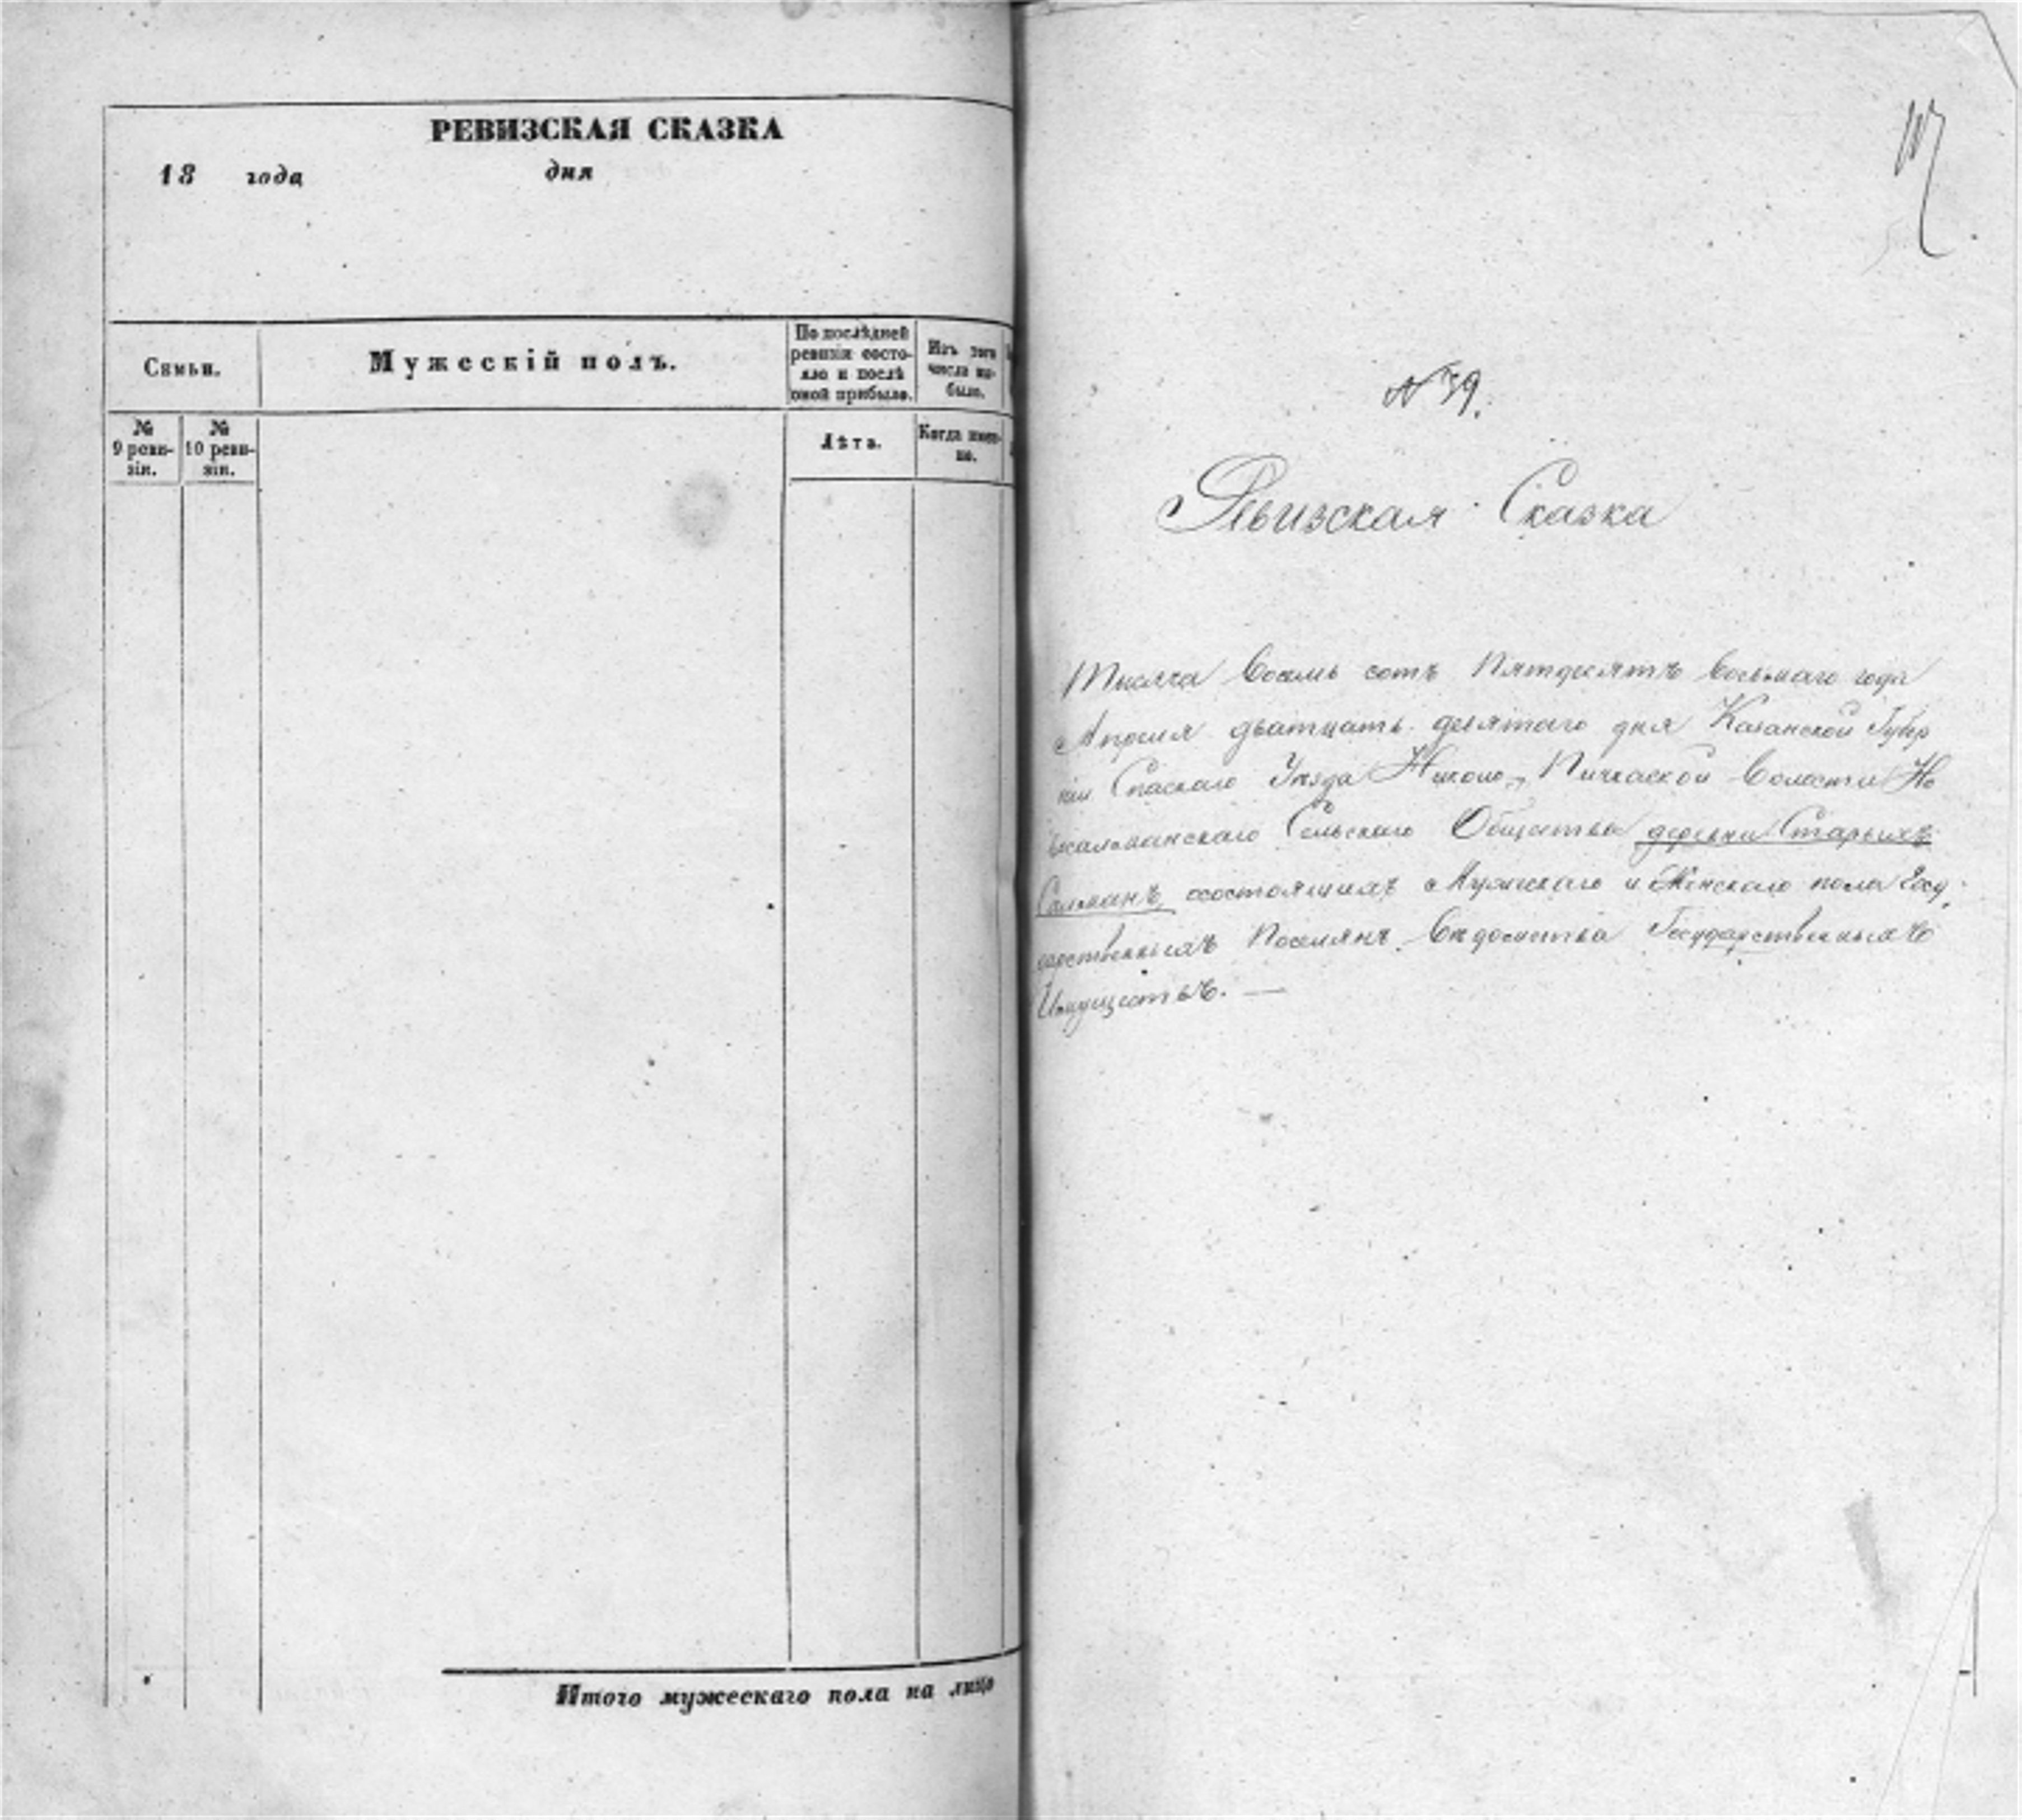 РЕВИЗСКАЯ СКАЗКА
18 года дня
Семьи.
Мужескій полъ.
По послѣдней
ревизіи состо-
яло и послѣ
оной прибыло.
Изъ того
числа вы-
было.
№
9 реви-
зіи.
№
10 реви-
зіи.
Лѣта.
Когда имен-
но.
Итого мужескаго пола на лицо
№ 39.
Ревизская Сказка
Тысяча Восемь сотъ Пятдесятъ Восьмаго года
Апреля дватцать девятаго дня Казанской Губер
ніи Спаскаго Уѣзда Николо-Пичкаской Волости Но
восалманскаго Сельскаго Общества деревни Старыхъ
Салманъ, состоящихъ Мужескаго и Женскаго пола Госу-
дарственныхъ Поселянъ Вѣдомства Государственныхъ
Имуществъ. —